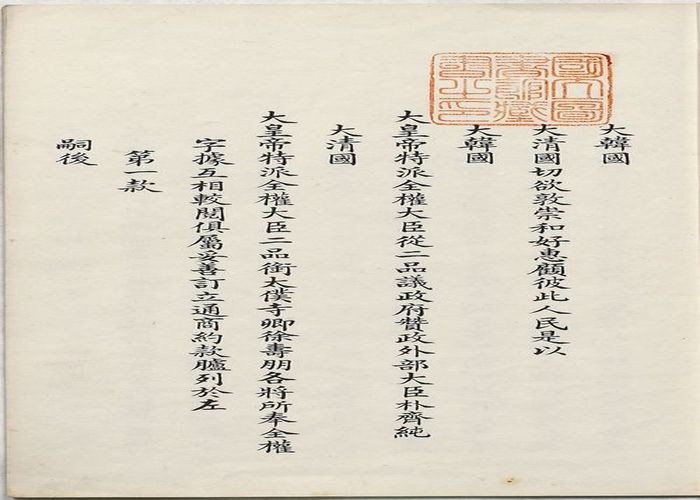 大韓國
大清國切欲敦崇和好惠顧彼此人民是以
大韓國
大皇帝特派全權大臣從二品議政府贊政外部大臣朴齊純
大清國
大皇帝特派全權大臣二品銜太僕寺卿徐壽朋各將所奉全權
字據互相較閱俱屬妥善訂立通商約款臚列於左
第一款
嗣後